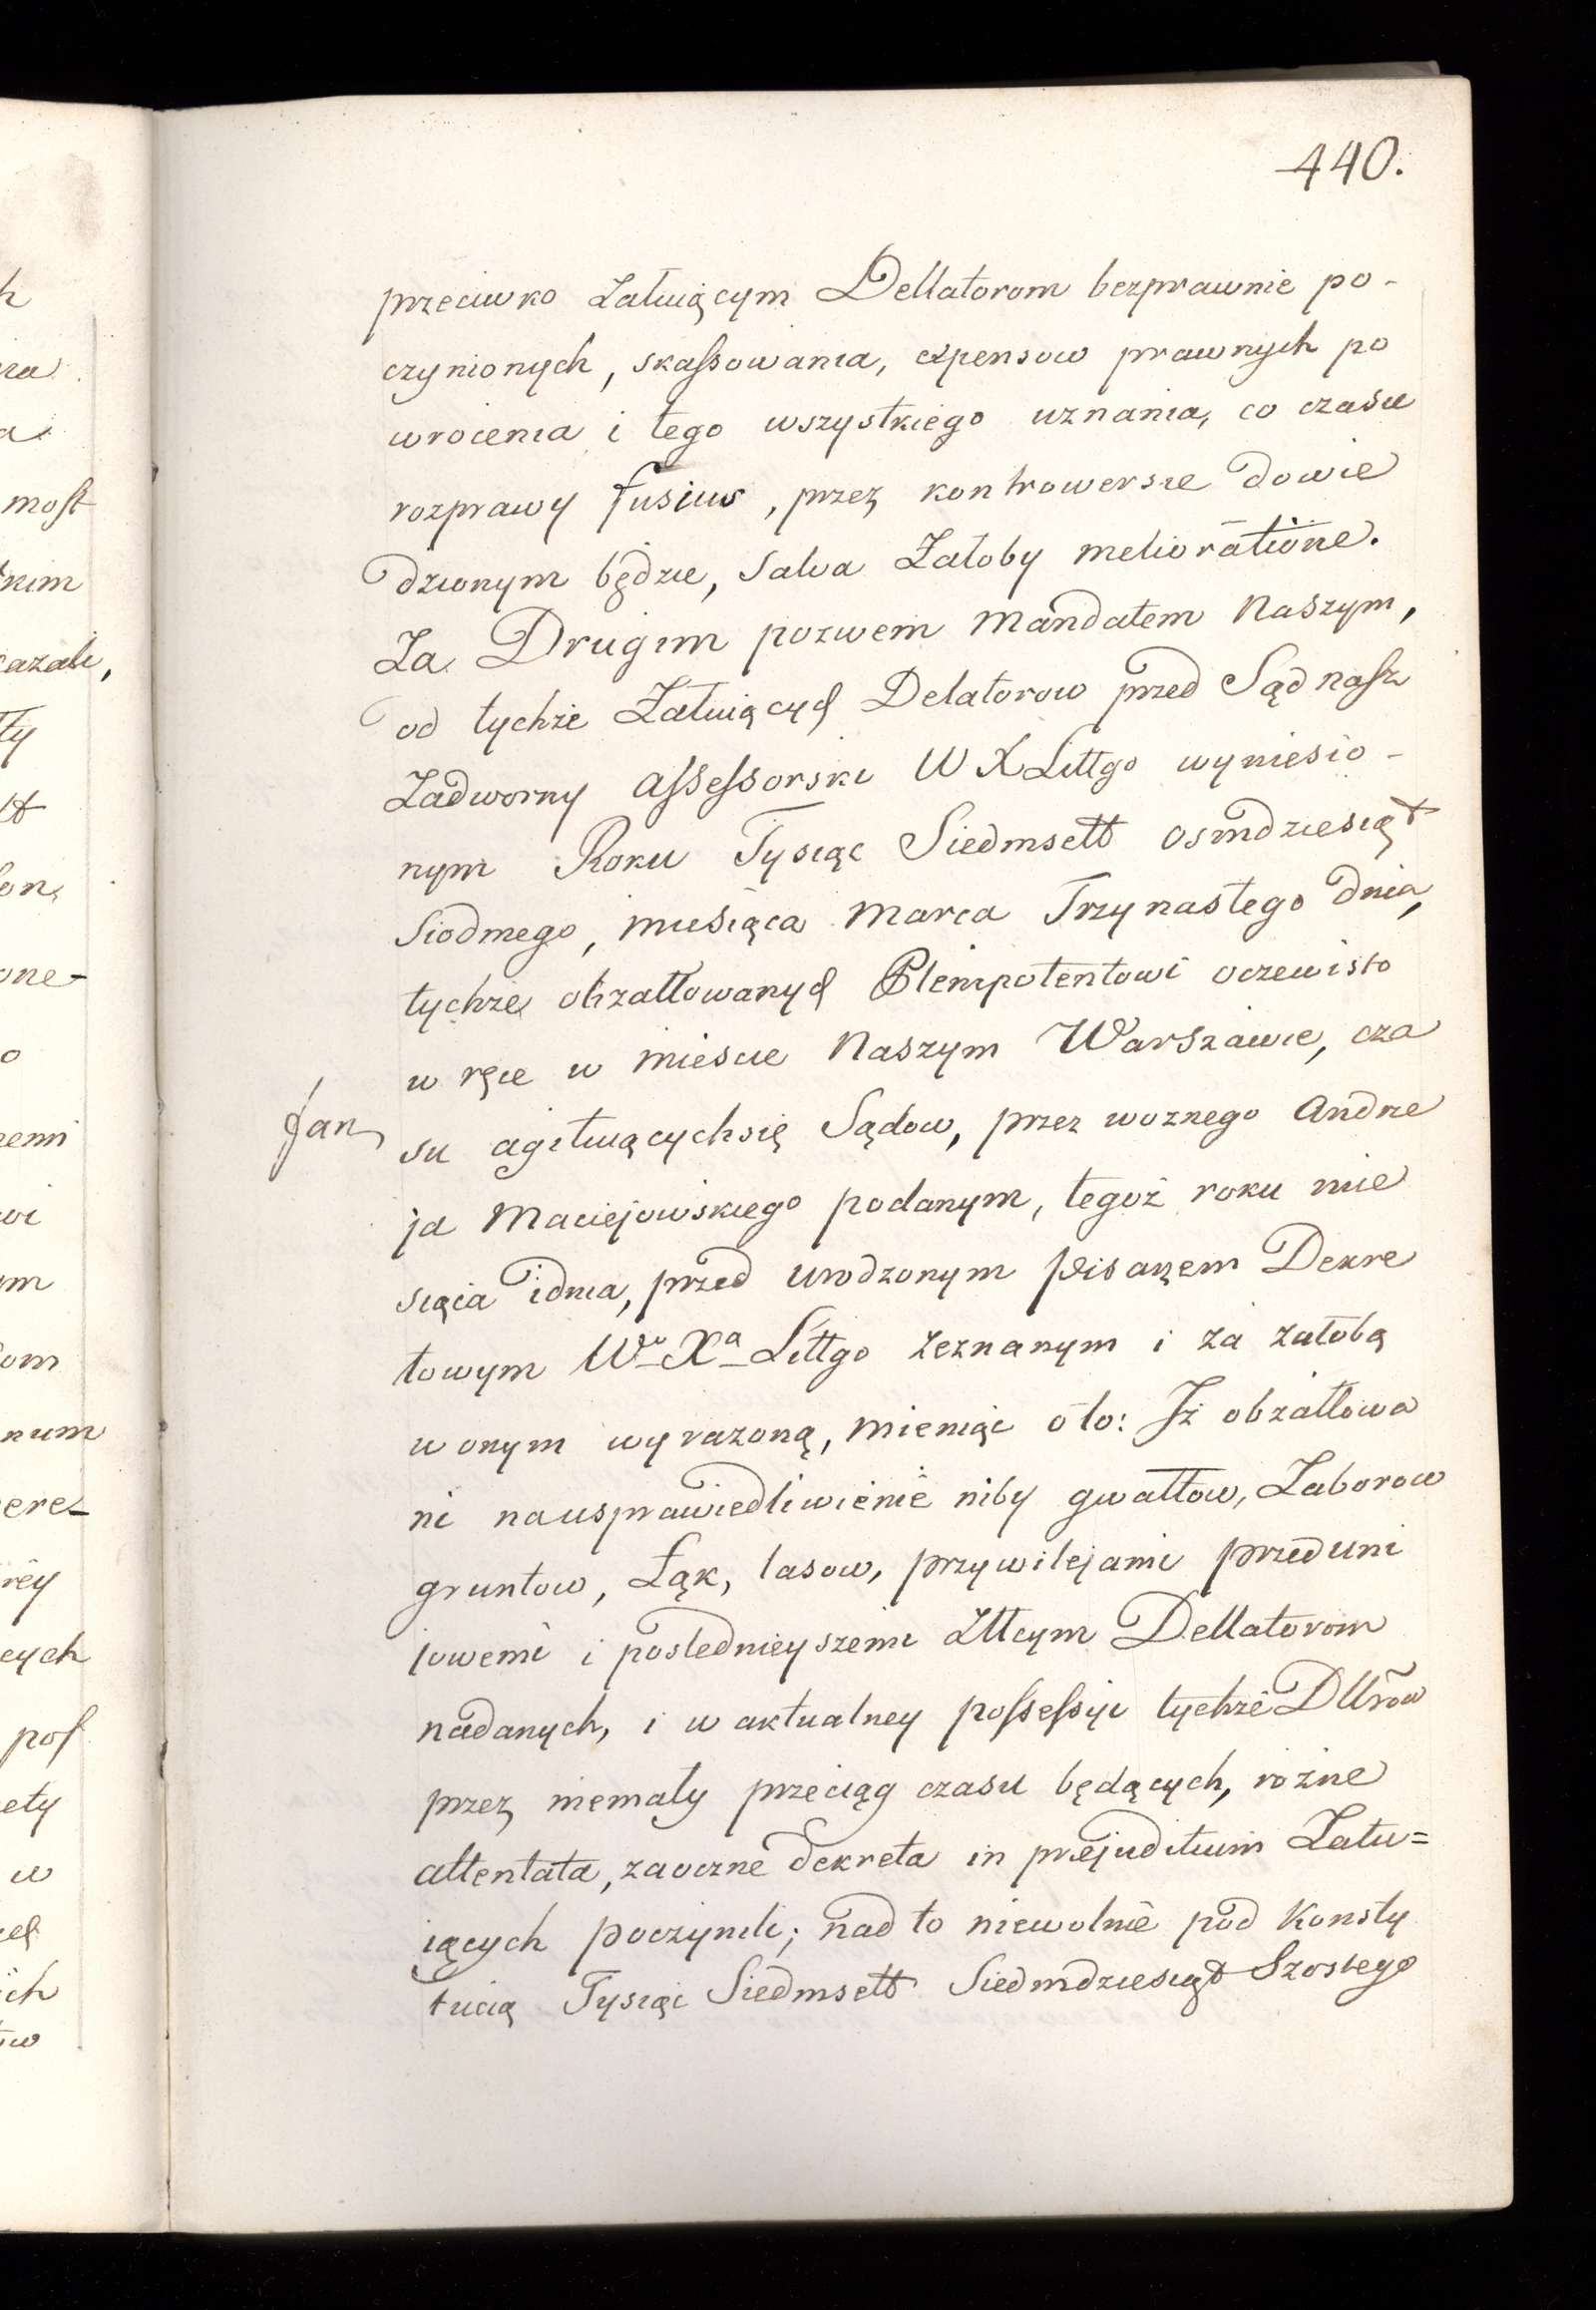 440.
przeciwko Załuiącym Dellatorom bezprawnie po-
czynionych, skaſsowania, expensow prawnych po
wrocenia i tego wszystkiego uznania, co czasu
rozprawy fusius, przez kontrowersie dowie
dzionym będzie, salva Załoby melioratione.
Za Drugim pozwem Mandatem Naszym,
od tychże Załuiących Delatorow przed Sąd nasz
Zadworny aſseſsorski W X Littgo wyniesio-
nym Roku Tysiąc Siedmsett osmdziesiąt
Siodmego, miesiąca Marca Trzynastego dnia,
tychże obzałłowanych Plenipotentowi oczewisto
w ręce w mieście Naszym Warszawie, cza
Jan
su agituiącychsię Sądow, przez woznego Andrze
ja Maciejowskiego podanym, tegoż roku mie
siąca i dnia, przed urodzonym pisarzem Dekre
towym Wo Xa Littgo zeznanym i za załobą
w onym wyrazoną, mieniąc o to: Iż obzałłowa
ni na usprawiedliwienie niby gwałtow, Zaborow
gruntow, Łąk, lasow, przywilejami przeduni
jowemi i poslednieyszemi Żłłcym Dellatorom
nadanych, i w aktualney poſseſsyi tychże Dllrow
przez niemały przeciąg czasu będących, rożne
attentata, zaoczne dekreta in prejuditium Zału=
iących poczynili; nad to niewolnie pod Konsty
tucią Tysiąc Siedmsett Siedmdziesiąt Szostego